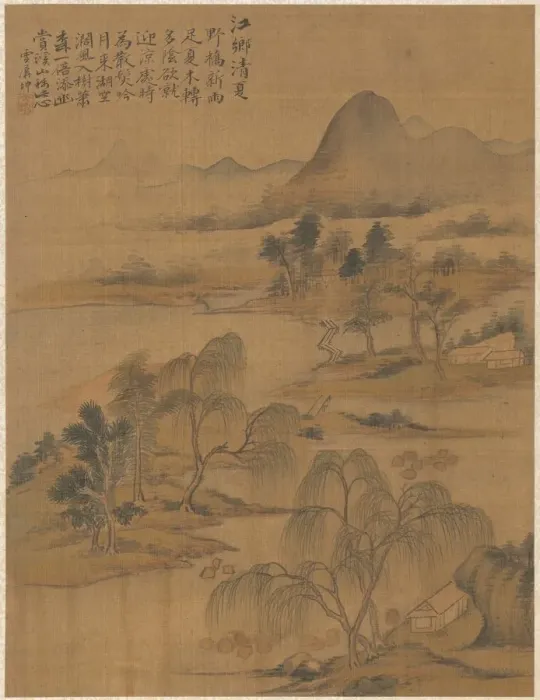 江鄉清夏
野橋新雨
足夏木轉
多陰欲就
迎涼處時
為散髮吟
月來湖空
澗風入樹葉
森一倍添幽
賞溪山稱此心
雪厓坤